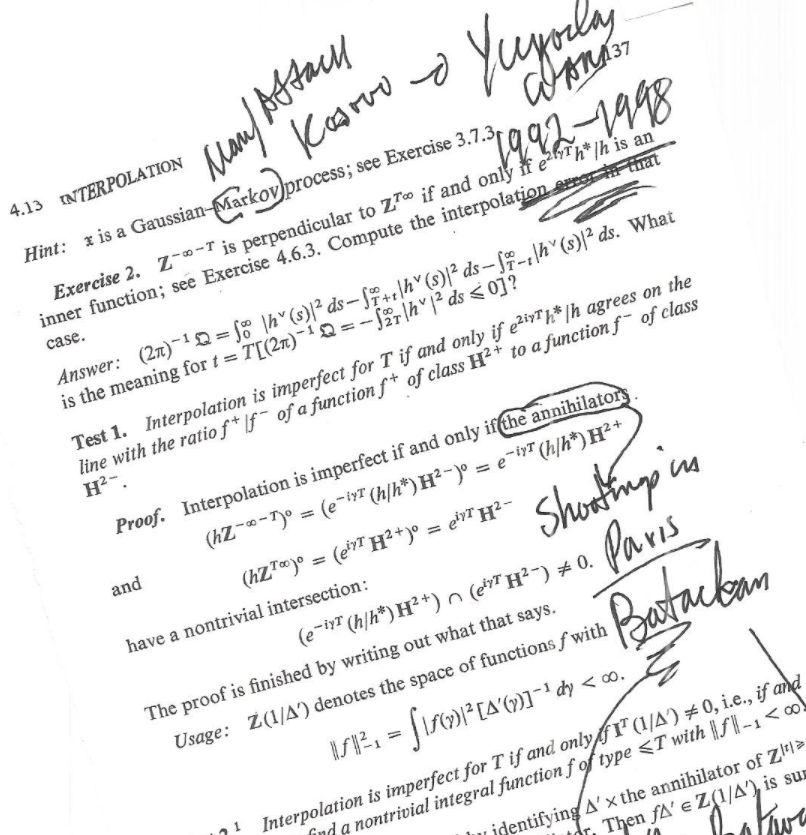 Attack
Kosovo → Yugoslav
WAR
137
1992-1998
4.13 INTERPOLATION
Hint: x is a Gaussian–Markov process; see Exercise 3.7.3.
Exercise 2. Z^{-∞-T} is perpendicular to Z^{T∞} if and only if e^{2iγT}h*/h is an
inner function; see Exercise 4.6.3. Compute the interpolation error in that
case.
Answer: (2π)^{-1} Ω = ∫_0^∞ |h^∨(s)|² ds − ∫_{T+t}^∞ |h^∨(s)|² ds − ∫_{T−t}^∞ |h^∨(s)|² ds. What
is the meaning for t = T[(2π)^{-1} Ω = −∫_{2T}^∞ |h^∨|² ds ⩽ 0]?
Test 1. Interpolation is imperfect for T if and only if e^{2iγT}h*/h agrees on the
line with the ratio f⁺/f⁻ of a function f⁺ of class H²⁺ to a function f⁻ of class
H²⁻.
Proof. Interpolation is imperfect if and only if the annihilators
(hZ^{-∞-T})° = (e^{-iγT} (h/h*) H²⁻)° = e^{-iγT} (h/h*) H²⁺
and
(hZ^{T∞})° = (e^{iγT} H²⁺)° = e^{iγT} H²⁻
Shootings in
Paris
have a nontrivial intersection:
(e^{-iγT} (h/h*) H²⁺) ∩ (e^{iγT} H²⁻) ≠ 0.
Bataclan
The proof is finished by writing out what that says.
Usage: Z(1/Δ′) denotes the space of functions f with
‖f‖²₋₁ = ∫|f(γ)|² [Δ′(γ)]^{-1} dγ < ∞.
Interpolation is imperfect for T if and only if I^T (1/Δ′) ≠ 0, i.e., if and
find a nontrivial integral function f of type ⩽T with ‖f‖₋₁ < ∞
by identifying Δ′ × the annihilator of Z^{|t|⩾
Then fΔ′ ∈ Z(1/Δ′) is